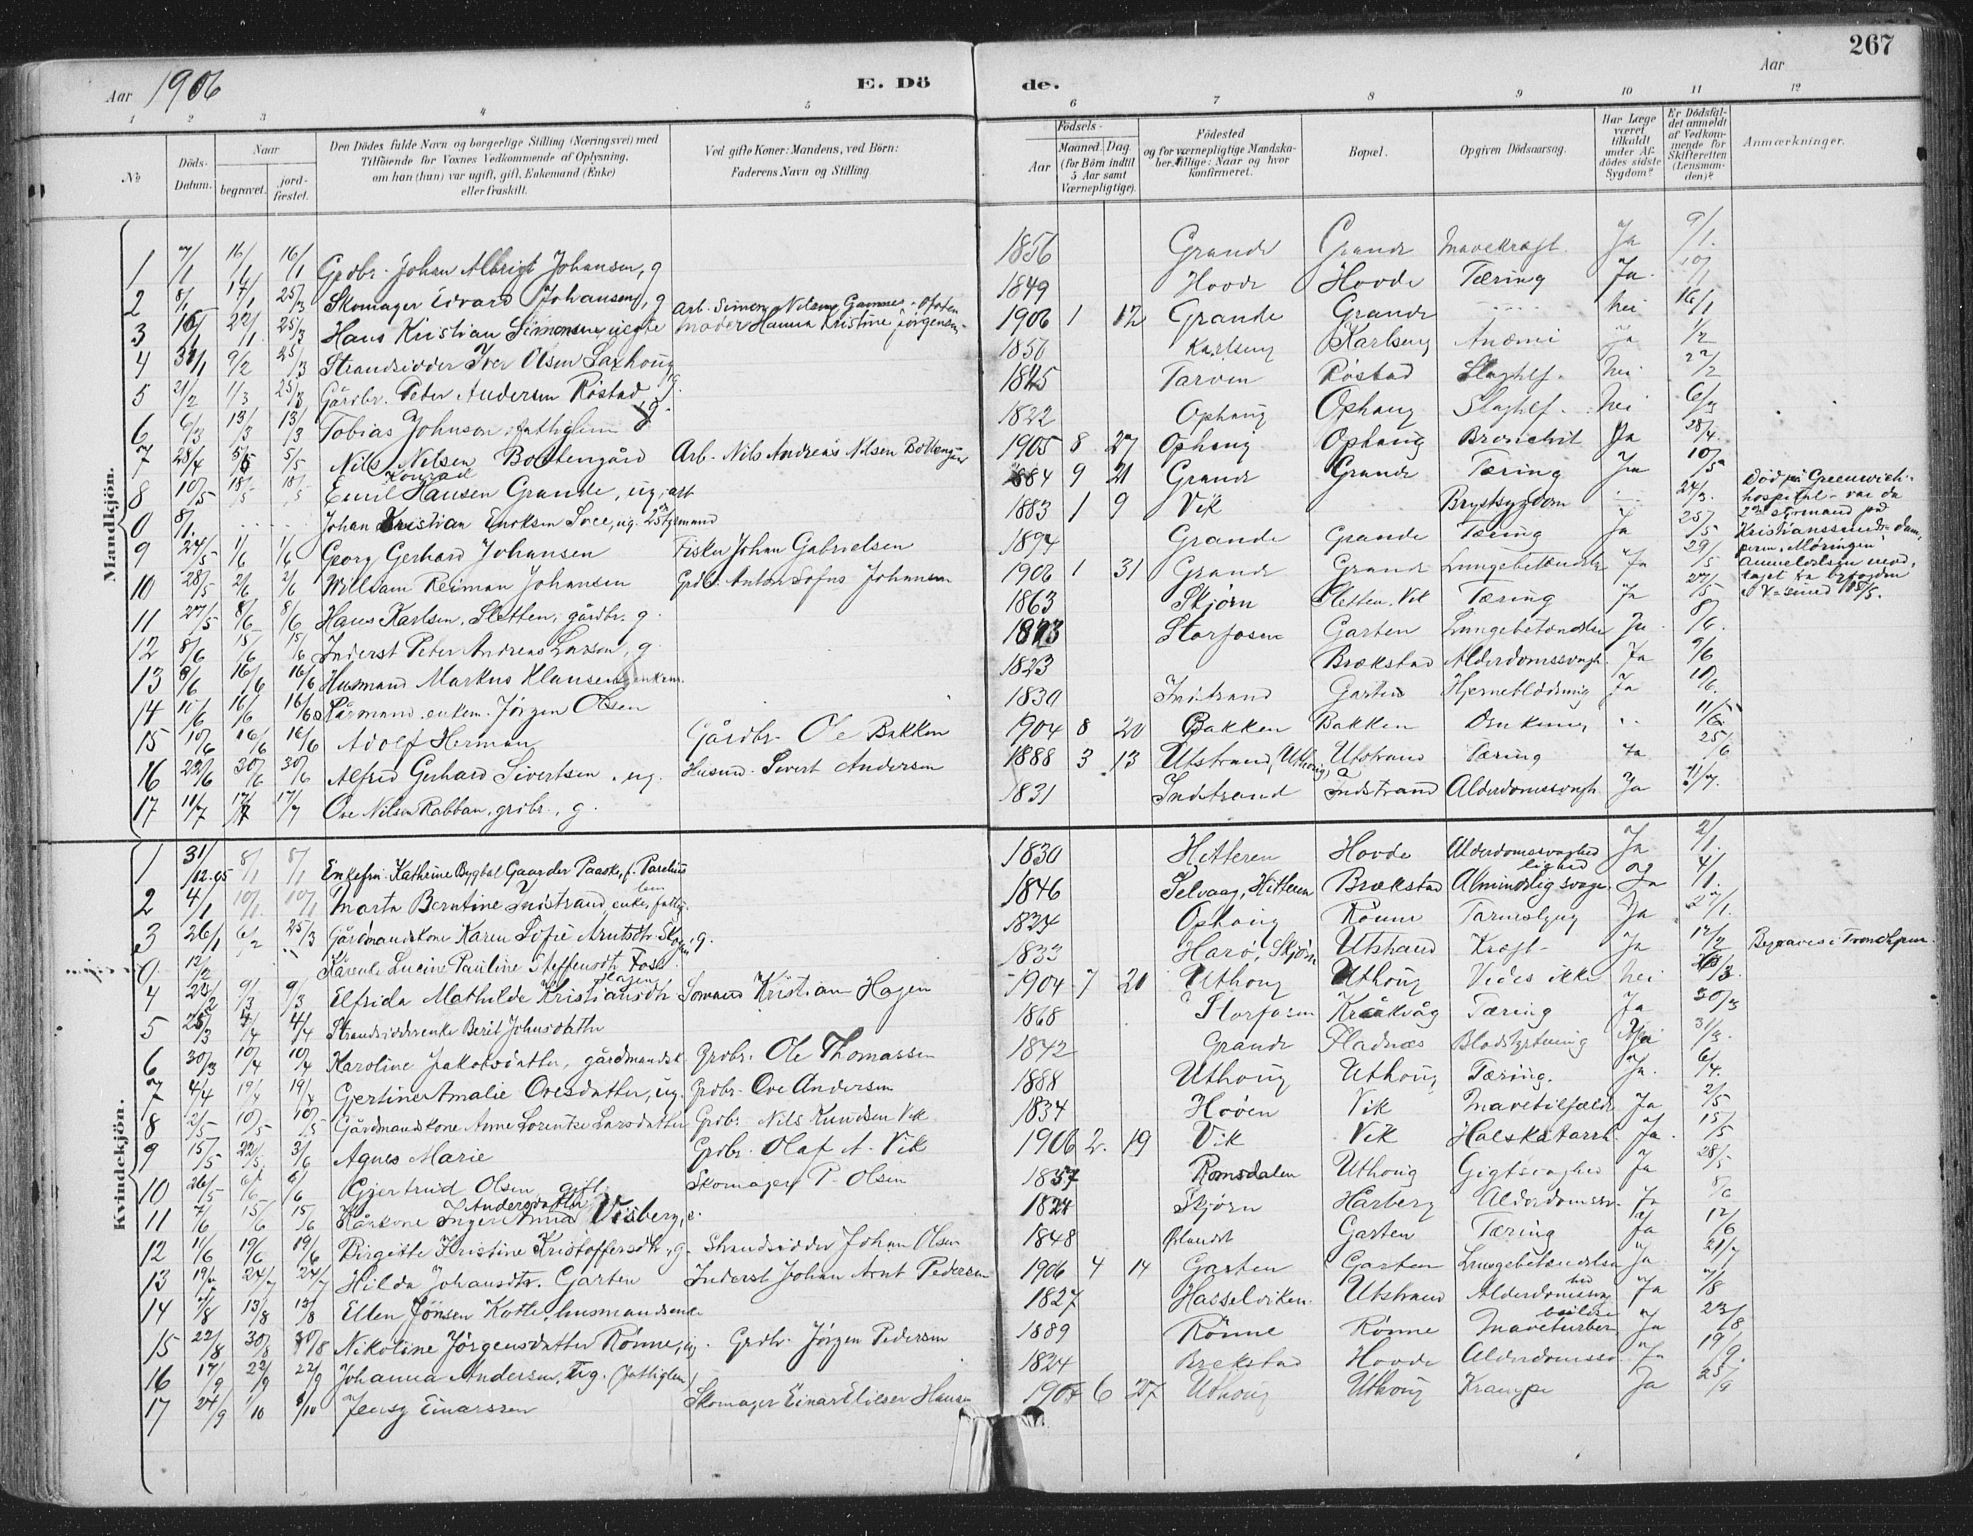 267
Aar 1906 E. Dö de. Aar
1 2 3 4 5 6 7 8 9 10 11 12
No Döds-Datum. Naar begravet. jord-fæstet. Den Dödes fulde Navn og borgerlige Stilling (Næringsvei) med Tilföiende for Voxnes Vedkommende af Oplysning, om han (hun) var ugift, gift, Enkemand (Enke) eller fraskilt. Ved gifte Koner: Mandens, ved Börn: Faderens Navn og Stilling Födsels- Aar Maaned. Dag. (for Börn indtil 5 Aar samt Værnepligtige). Födested og for værnepligtige Mandskaber tillige: Naar og hvor konfirmeret. Bopæl. Opgiven Dödsaarsag. Har Læge været tilkaldt under Afdödes sidste Sygdom? Er Dödsfaldet anmeldt af Vedkommende for Skifteretten (Lensmanden)? Anmærkninger.
Mandkjön.
1 7/1 16/1 16/1 Grdbr. Johan Albrigt Johansen, g 1856 Grande Grande Mavekræft. Ja 9/1.
2 8/1 14/1 25/3 Skomager Edvard Johansen, g 1849 Hovde Hovde Tæring Ja.
3 22/1 25/3 Hans Kristian Simonsen uegte Arb. Simon Nilsen Moder Hanna Kristine Jörgensen 1906 1 12 Grande Grande nei 16/1
4 31/1 9/2 25/3 Strandsidder Iver Olsen Saxhoug Karlseng Karlseng Anæmi Ja 1/2
5 21/2 1/3 25/3 Gårdbr. Peter Andersen Röstad, g. 1845 Tarven Röstad Slaghlf. nei 22/2
6 6/3 13/3 13/3 Tobias Johnsen, fattiglem g. 1822 Ophaug Ophaug Slaghlf. nei 6/3
7 28/4 5/5 5/5 Nils Nilsen Bottengård Arb. Nils Andreas Nilsen 1905 8 27 Ophaug Ophaug Bronchit Ja 28/4.
8 10/5 18/5 18/5 Emil Konrad Hansen Grande, ug, arb 1884 9 21 Grande Grande Tæring Ja 10/5
0 8/1. Johan Kristian Eriksen Svee, ug. 2den Styrmand 1883 1 9 Vik Brystsygdom 24/3. Död på Greenwich-hospital - var da 2den styrmand på Kristianssunds-
9 24/5 1/6 1/6 Georg Gerhard Johansen Fisker Johan Gabrielsen 1894 Grande Grande Tæring Ja 25/5
10 28/5 2/6 2/6 William Reiman Johansen Grdbr. Anton Sofus Johansen 1906 1 31 Grande Grande Lungebetændelse Ja 29/5
11 27/5 8/6 8/6 Hans Karlsen, Sletten, gårdbr. g. 1863 Skjörn Sletten, Vik Tæring Ja 27/5
12 8/6 15/6 15/6 Inderst Peter Andreas Larsen, g. Storfosen Garten Lungebetændelse Ja 8/6.
13 8/6 16/6 16/6 Husmand Markus Klausen, enkem. 1823 Brækstad Alderdomssvagh. Ja 9/6
14 10/6 16/6 16/6 Kårmand, enkem. Jörgen Olsen 1830 Indstrand Garten Hjerneblödning Ja 10/6.
15 10/6 16/6 16/6 Adolf Herman Gårdbr. Ole Bakken 1904 8 20 Bakken Bakken Drukning 11/6
16 22/6 30/6 30/6 Alfred Gerhard Sivertsen, ug. Husmd. Sivert Andersen 1888 3 13 Utstrand, Uthoug Utstrand Tæring Ja 25/6
17 11/7 17/7 17/7 Ove Nilsen Rabban, grdbr., g. 1831 Indstrand Indstrand Alderdomssvagh. Ja 11/7.
Kvindekjön.
1 31/12.05 8/1 8/1 Enkefru Kathrine Bygbal Gaarder Paaske, f. Parelius 1830 Hitteren Hovde Alderdomssvaghed Ja 2/1.
2 4/1 10/1 10/1 Marta Berntine Indstrand, enke, fattiglem 1846 Selvaag, Hitteren Brækstad Almindelig svaghed Ja 4/1.
3 26/1 6/2 25/3 Gårdmandskone Karen Sofie Arntsdtr. g. 1834 Ophaug Rönne Ja 27/1.
0 12/2 Kårenke Lucine Pauline Steffensdtr. Foss 1833 Harö, Skjörn Utstrand Kræft Ja 12/2 Begraves i Trondhjem.
4 9/3 9/3 Elfrida Mathilde Kristiansdtr Hagen Sömand Kristian Hagen 1904 7 20 Uthoug Uthoug Vides ikke nei
5 25/3 4/4 4/4 Strandsidderenke Berit Johnsdatter 1868 Storfosen Kråkvåg Tæring Ja 30/3
6 30/3 10/4 10/4 Karoline Jakobsdatter, gårdmandsk. Grdbr. Ole Thomassen 1842 Grande Fladnæs Blodstyrtning Nei 31/3.
7 4/4 19/4 19/4 Gjertine Amalie Ovesdatter, ug. Grdbr. Ove Andersen 1888 Uthoug Uthoug Tæring. Ja. 6/4.
8 2/5 10/5 10/5 Gårdmandskone Anne Lorentse Larsdatter Grdbr. Nils Knudsen Vik 1834 Hoöen Vik Mavetilfælde Ja 2/5
9 15/5 22/5 3/6 Agnes Marie Grdbr. Olaf A. Vik 1906 2. 19 Vik Vik Halskatarrh. Ja. 15/5
10 26/5 6/6 6/6 Gjertrud Olsen, gift. Skomager P. Olsen 1837 Romsdalen Uthoug Gigtsvaghed Ja 28/5
11 7/6 15/6 15/6 Kårkone Inger Anna Andersdatter Visberg, e. Skjörn Hårberg Alderdomssv. Ja 8/6
12 11/6 19/6 19/6 Birgitte Kristine Kristoffersdtr, g. Strandsidder Johan Olsen 1848 Ørlandet Garten Tæring Ja 12/6
13 19/7 24/7 24/7 Hilda Johansdtr. Garten Inderst Johan Arnt Pedersen 1906 4 14 Garten Garten Lungebetændelse Ja 21/7
14 7/8 13/8 13/8 Ellen Jönsen Kotte, husmandsenke 1827 Hasselviken Utstrand Alderdomssvaghed Ja 7/8
15 22/8 30/8 30/8 Nikoline Jörgensdatter Rönne, ug. Grdbr. Jörgen Pedersen 1889 Rönne Rönne Ja 23/8
16 17/9 22/9 22/9 Johanna Andersen, ug. fattiglem 1824 Brekstad Hovde Alderdomssv. Ja 19/9.
17 24/9 1/10 1/10 Jensy Einarssen Skomager Einar Elieser Hansen 6 27 Uthoug Uthoug Krampe Ja 25/9